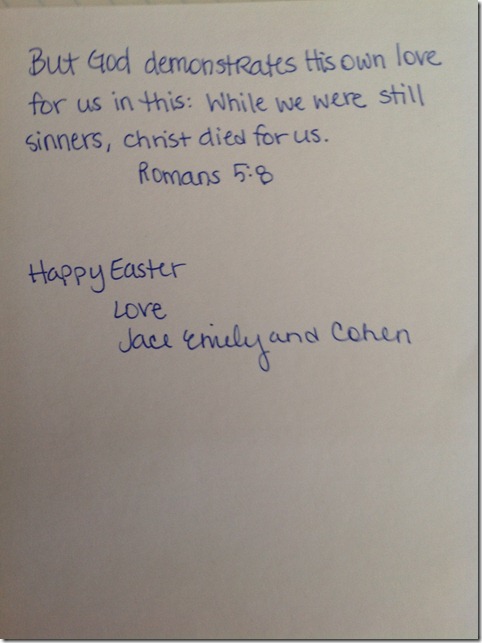 But God demonstrates His own love
for us in this: While we were still
sinners, Christ died for us.
Romans 5:8
Happy Easter
Love
Jace Emily and Cohen